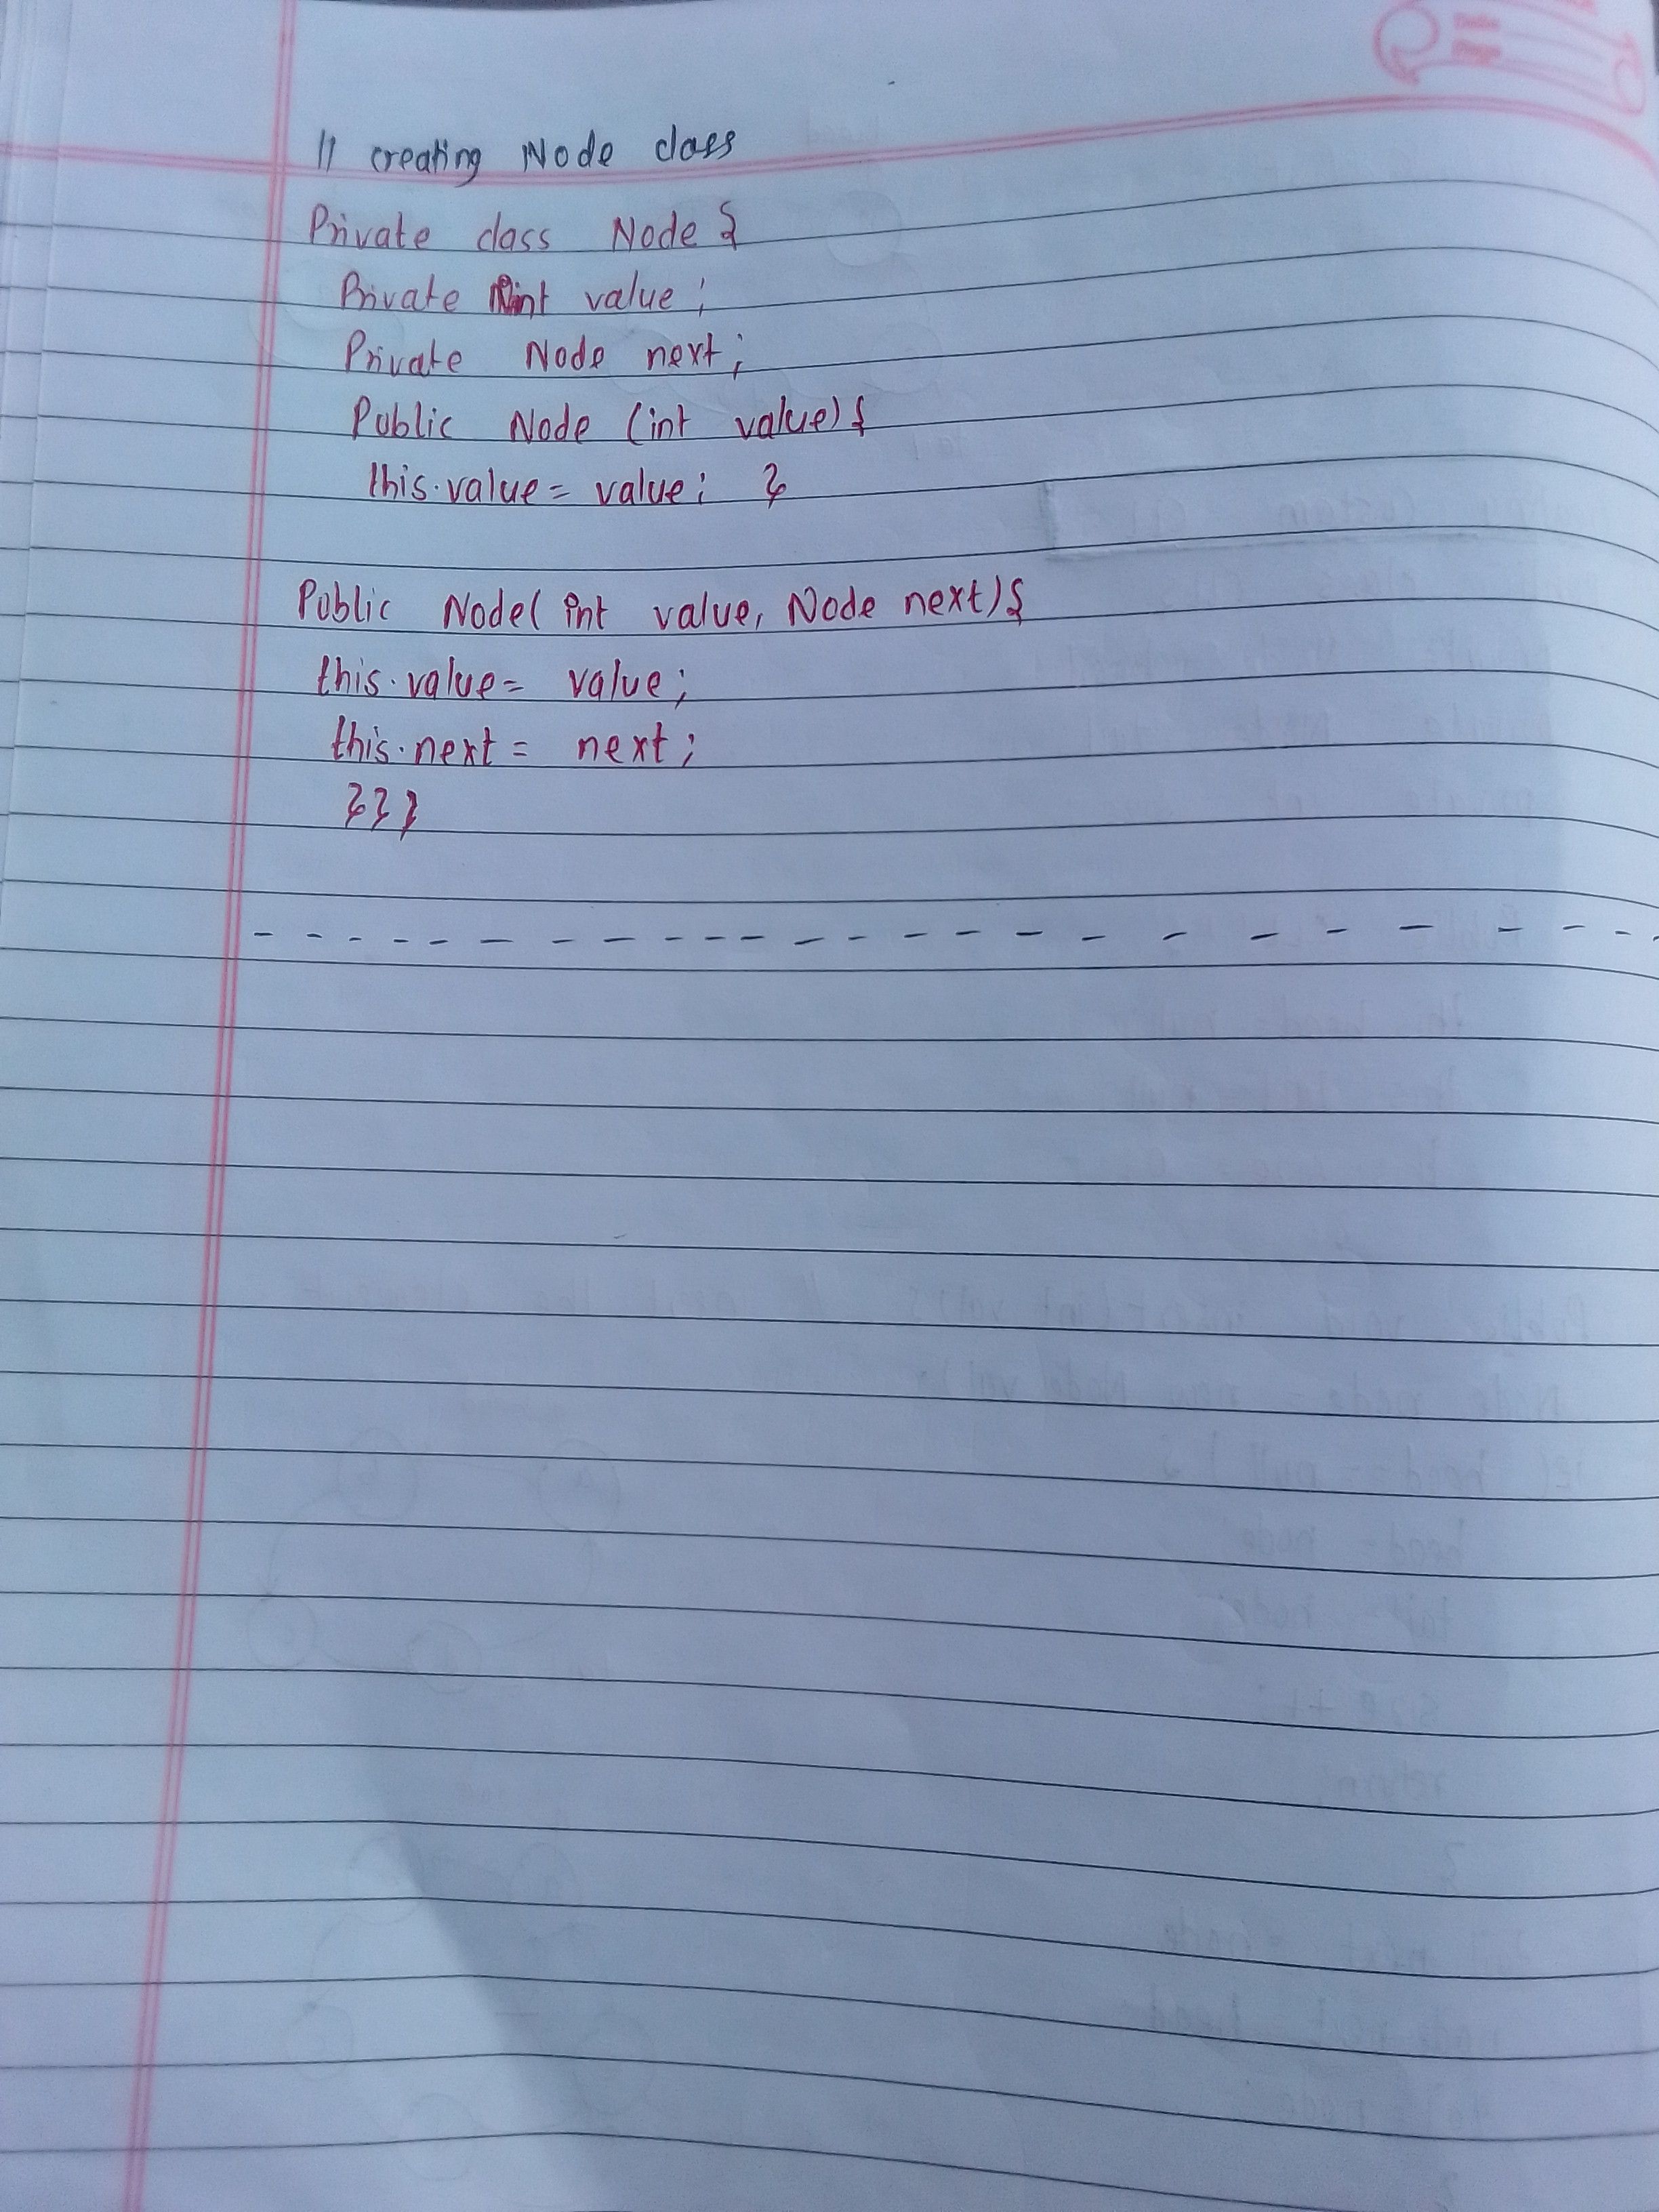 // creating Node class
Private class Node {
Private int value ;
Private Node next ;
Public Node (int value) {
this.value = value ; }
Public Node( int value, Node next) {
this.value = value ;
this.next = next ;
} } }